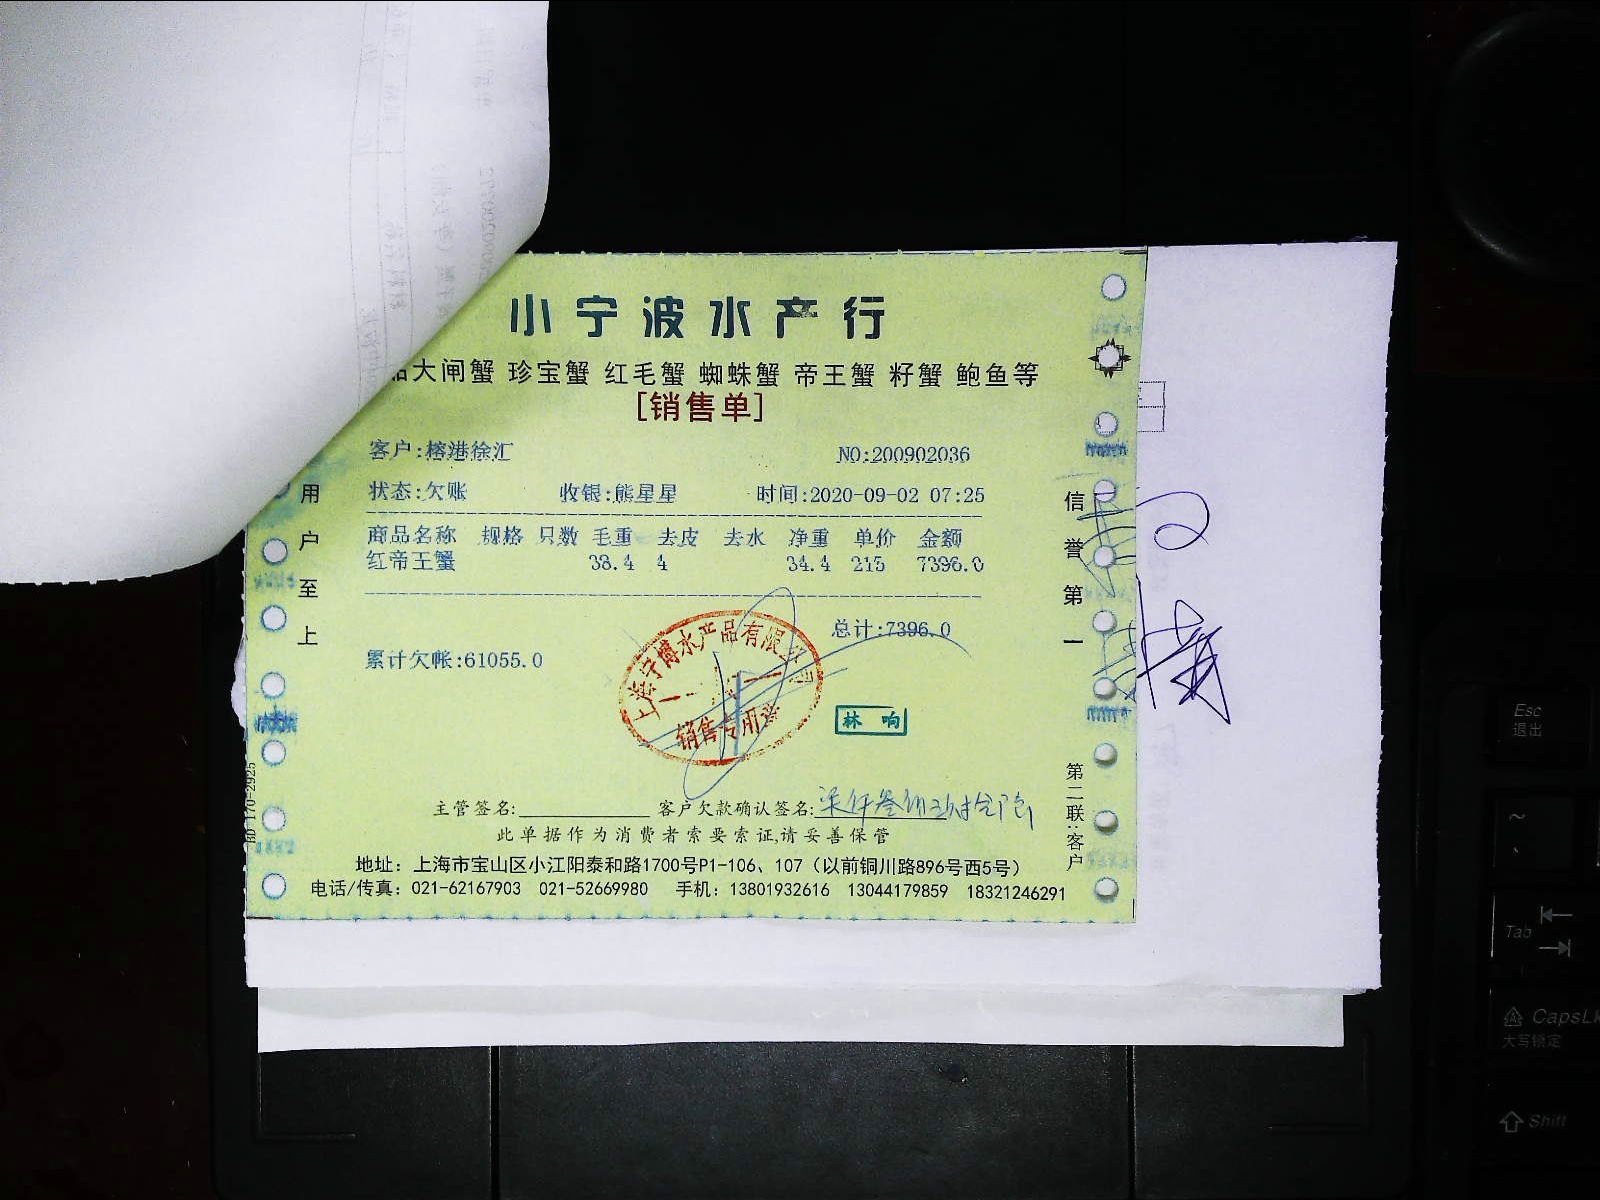 小宁波水产行
大闸蟹 珍宝蟹 红毛蟹 蜘蛛蟹 帝王蟹 籽蟹 鲍鱼等
[销售单]
客户:榕港徐汇 NO:200902036
状态:欠账 收银:熊星星 时间:2020-09-02 07:25
商品名称 规格 只数 毛重 去皮 去水 净重 单价 金额
红帝王蟹 38.4 4 34.4 215 7396.0
总计:7396.0
累计欠帐:61055.0
上海宁博水产品有限公司
销售专用章
林响
主管签名: 客户欠款确认签名:
此单据作为消费者索要索证,请妥善保管
地址：上海市宝山区小江阳泰和路1700号P1-106、107（以前铜川路896号西5号）
电话/传真：021-62167903 021-52669980 手机：13801932616 13044179859 18321246291
用户至上
信誉第一
第二联:客户
Esc
退出
~
Tab
CapsLk
大写锁定
Shift